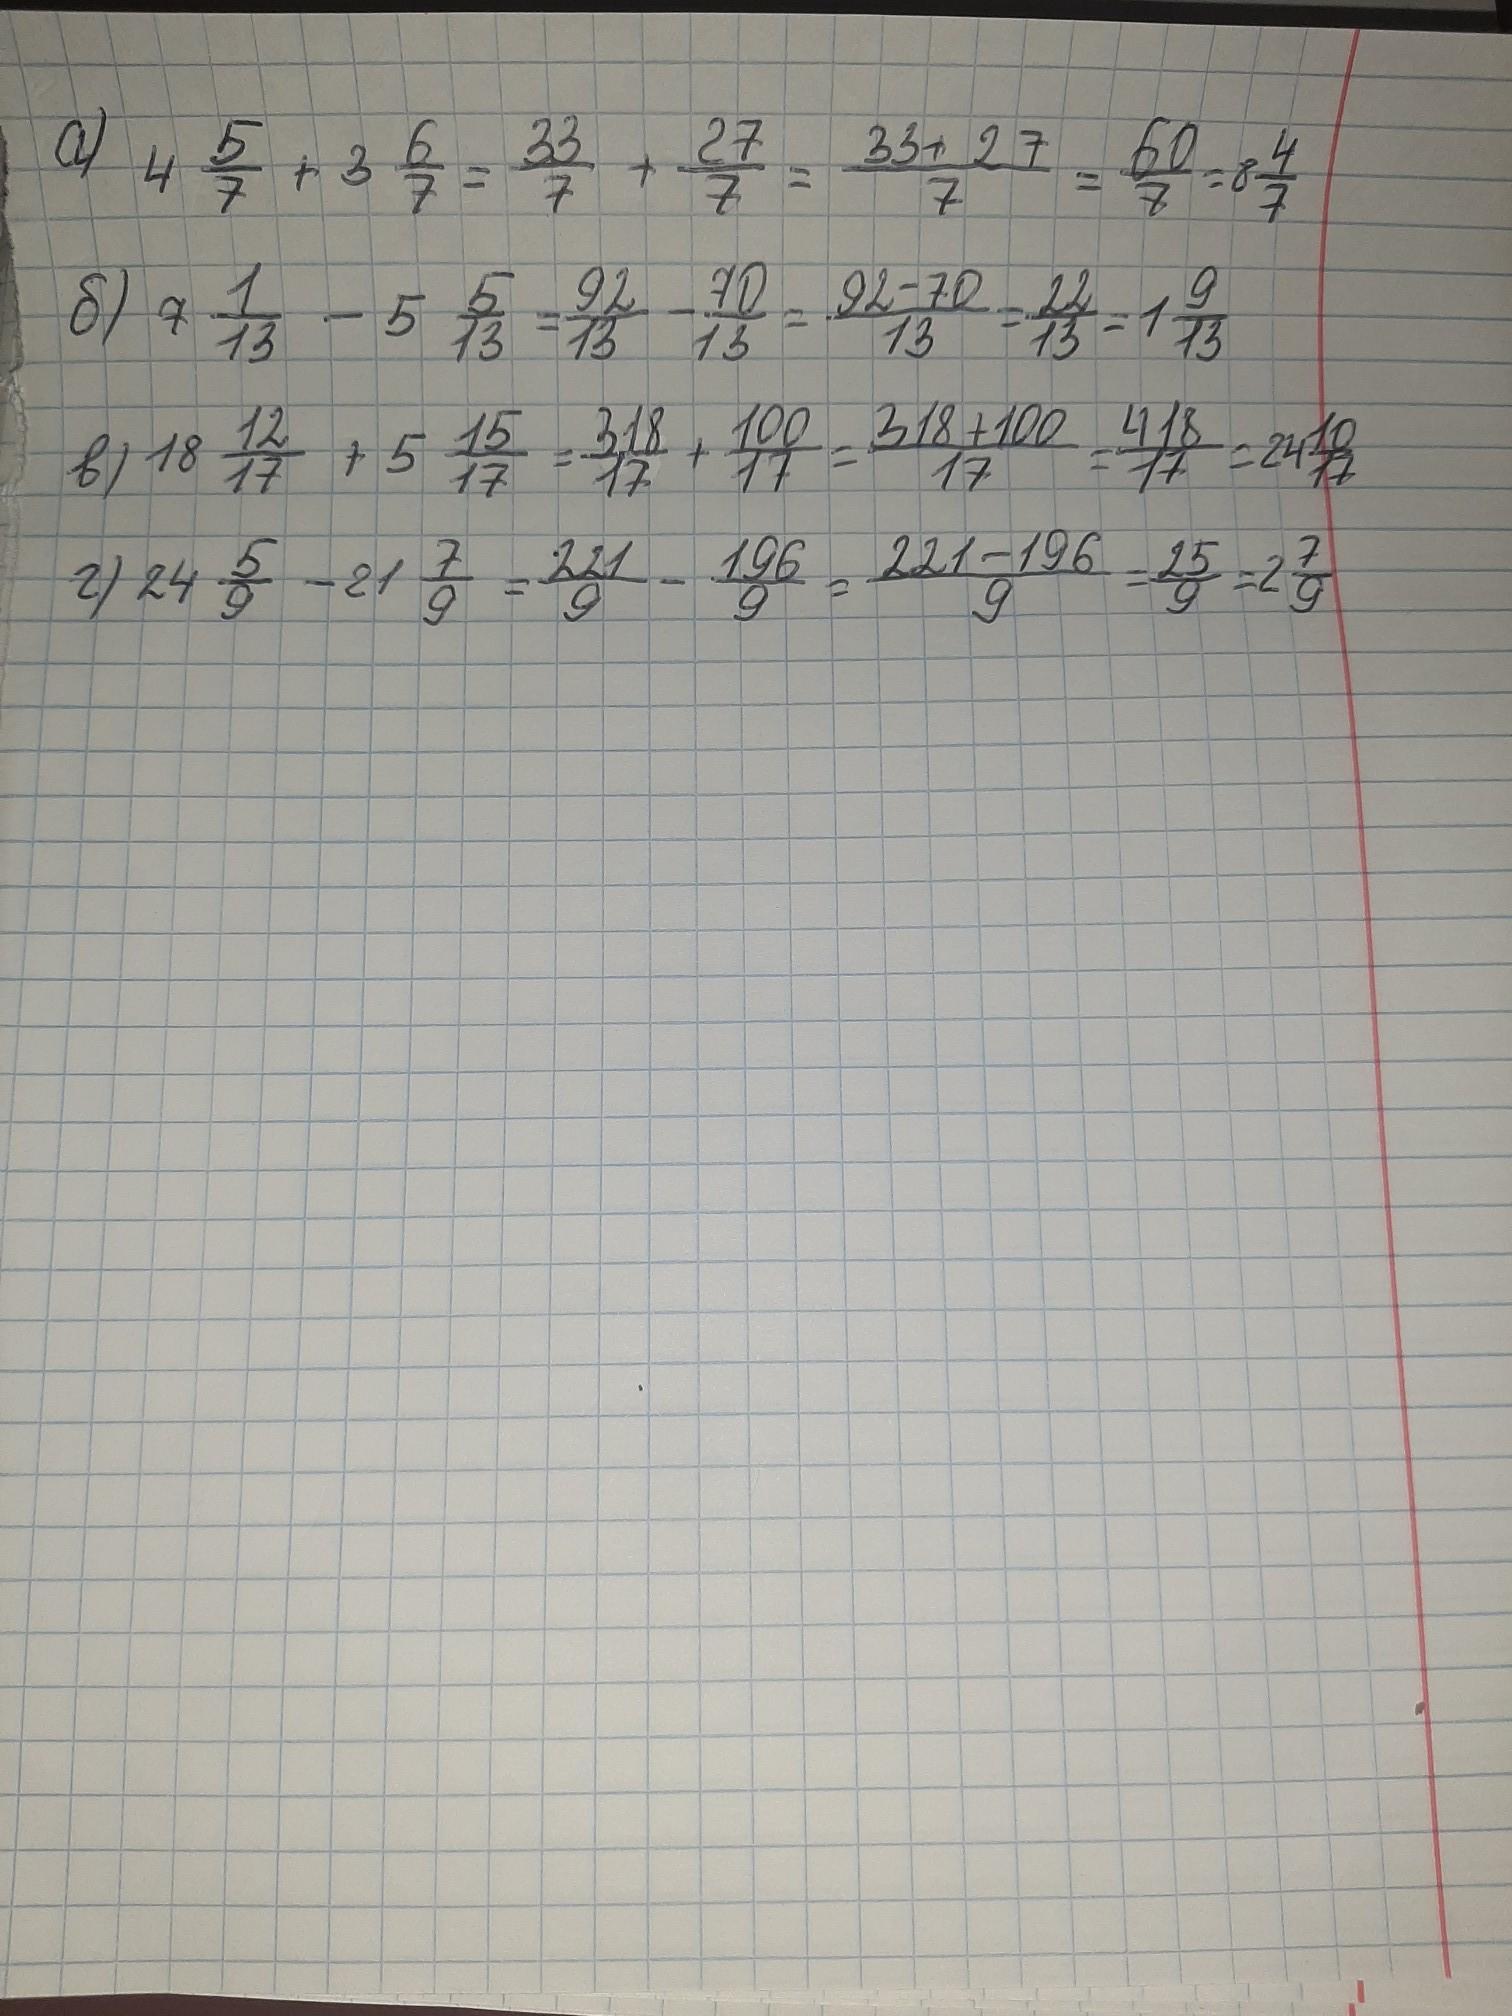 а) 4 5/7 + 3 6/7 = 33/7 + 27/7 = 33+27/7 = 60/7 = 8 4/7
б) 7 1/13 - 5 5/13 = 92/13 - 70/13 = 92-70/13 = 22/13 = 1 9/13
в) 18 12/17 + 5 15/17 = 318/17 + 100/17 = 318+100/17 = 418/17 = 24 10/17
г) 24 5/9 - 21 7/9 = 221/9 - 196/9 = 221-196/9 = 25/9 = 2 7/9